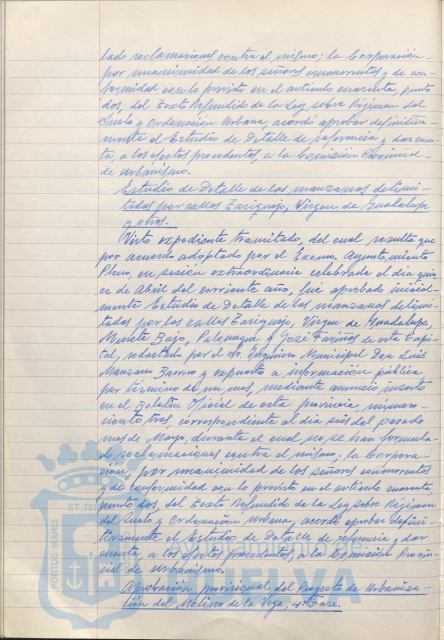 tado reclamaciones contra el mismo; la Corporación
por unanimidad de los señores concurrentes y de con-
formidad con lo previsto en el artículo cuarenta, punto
dos, del Texto Refundido de la Ley sobre Régimen del
Suelo y Ordenación Urbana, acordó aprobar definitiva-
mente el Estudio de Detalle de referencia y dar cuen-
ta, a los efectos procedentes, a la Comisión Provincial
de Urbanismo.
Estudio de Detalle de las manzanas delimi-
tadas por calles Tariquejo, Virgen de Guadalupe
y otras.
Visto expediente tramitado, del cual resulta que
por acuerdo adoptado por el Excmo. Ayuntamiento
Pleno, en sesión extraordinaria celebrada el día quin-
ce de Abril del corriente año, fué aprobado inicial-
mente Estudio de Detalle de las manzanas delimi-
tadas por las calles Tariquejo, Virgen de Guadalupe,
Bajo, Palomeque y José Fariñas de esta Capi-
tal, redactado por el Sr. Arquitecto Municipal Don Luis
Manzano y expuesto a información pública,
por término de un mes, mediante anuncio inserto
en el Boletín Oficial de esta provincia, número
ciento tres, correspondiente al día seis del pasado
mes de Mayo, durante el cual no se han formula-
do reclamaciones contra el mismo; la Corpora-
ción, por unanimidad de los señores concurrentes
y de conformidad con lo previsto en el artículo cuarenta,
punto dos, del Texto Refundido de la Ley sobre Régimen
del Suelo y Ordenación Urbana, acordó aprobar defini-
tivamente el Estudio de Detalle de referencia y dar
cuenta, a los efectos procedentes, a la Comisión Provin-
cial de Urbanismo.
Aprobación provisional del Proyecto de Urbaniza-
ción del Molino de la Vega, 4ª Fase.
PORTUS MARIS
ET TER
HUELVA